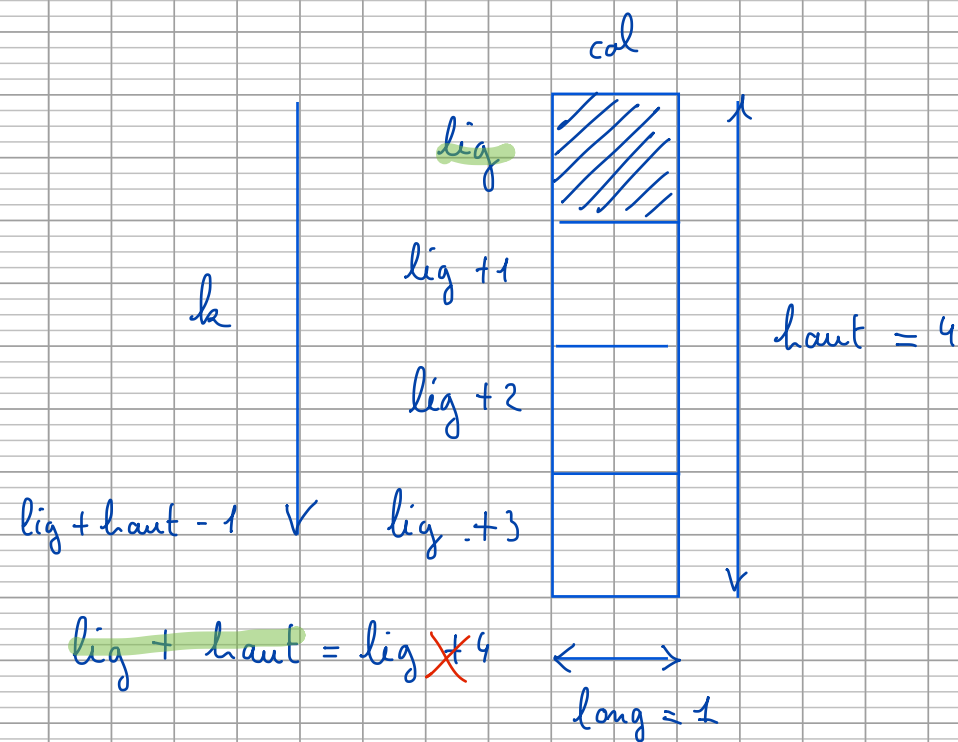 col
lig
lig +1
k
haut = 4
lig +2
lig + haut - 1
lig +3
lig + haut = lig +4
long = 1